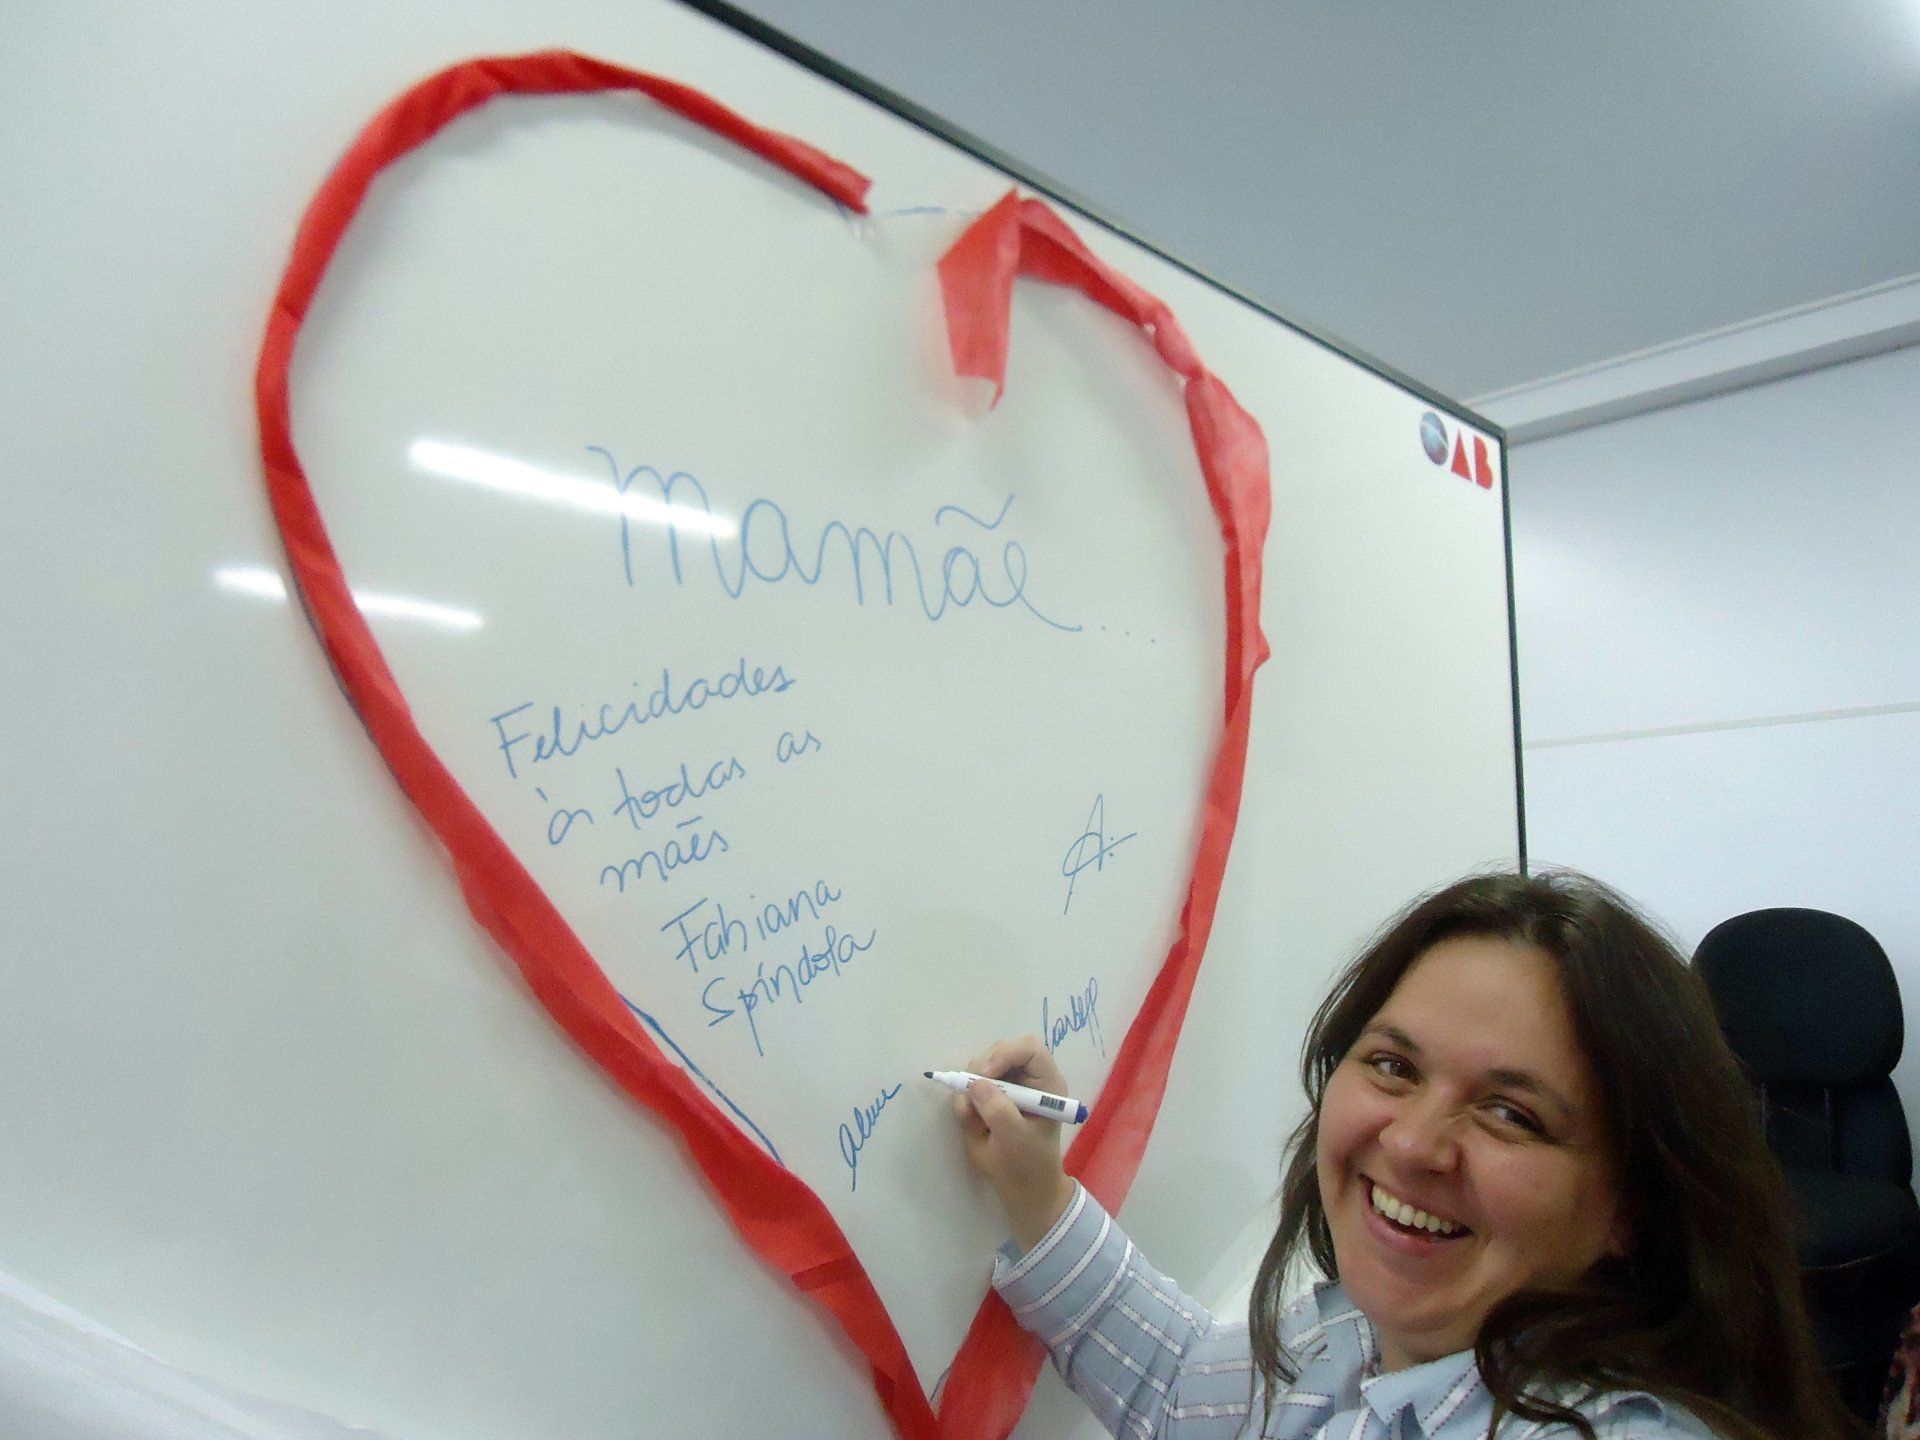 OAB
Mamãe....
Felicidades
às todas as
mães
Fabiana
Spíndola
A.